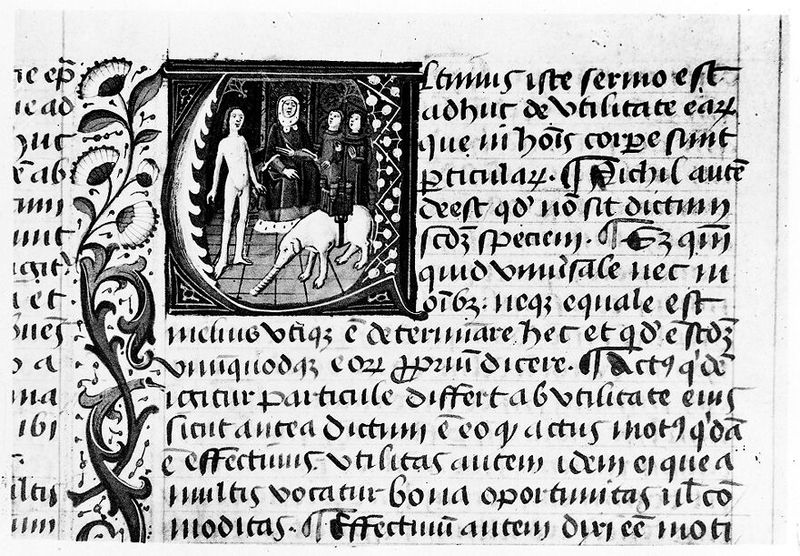 ie ep̄
ie ad
huc
ē ab
tum
unt
a et
o a
ma
ibi
iltis
um
Vltimus iste sermo est
adhuc de vtilitate eaꝝ
que in hoīs corꝑe sunt
ꝑticulaꝝ. ¶ Nichil autē
deest qd' nō sit dictum
scdꝫ speciem. ¶ Sꝫ qm̄
quid vniu'sale nec in
oībꝫ. neqꝫ equale est
melius vtiqꝫ ē determinare hec et qd' ē scdꝫ
vnūquodqꝫ eoꝝ ꝓpriū dicere. ¶ Actꝰ q'dē
igitur particule differt ab vtilitate eius
sicut antea dictum ē eo ꝙ actus motꝰ q'dā
ē effectiuus. vtilitas autem idem ei que a
multis vocatur bona oportunitas ul' cō
moditas. ¶ Effectiuū autem dixi eē moti